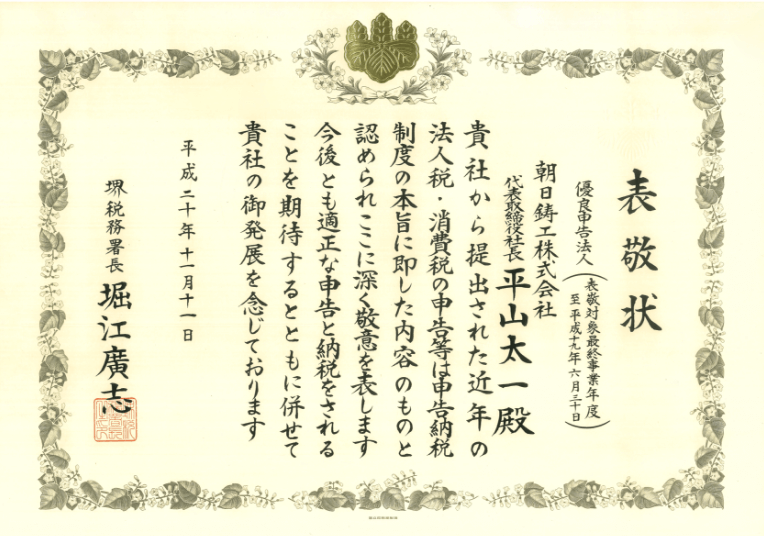 表敬状
優良申告法人
(表敬対象最終事業年度
至平成十九年六月三十日)
朝日鋳工株式会社
代表取締役社長 平山太一殿
貴社から提出された近年の
法人税・消費税の申告等は申告納税
制度の本旨に即した内容のものと
認められここに深く敬意を表します
今後とも適正な申告と納税をされる
ことを期待するとともに併せて
貴社の御発展を念じております
平成二十年十一月十一日
堺税務署長 堀江廣志